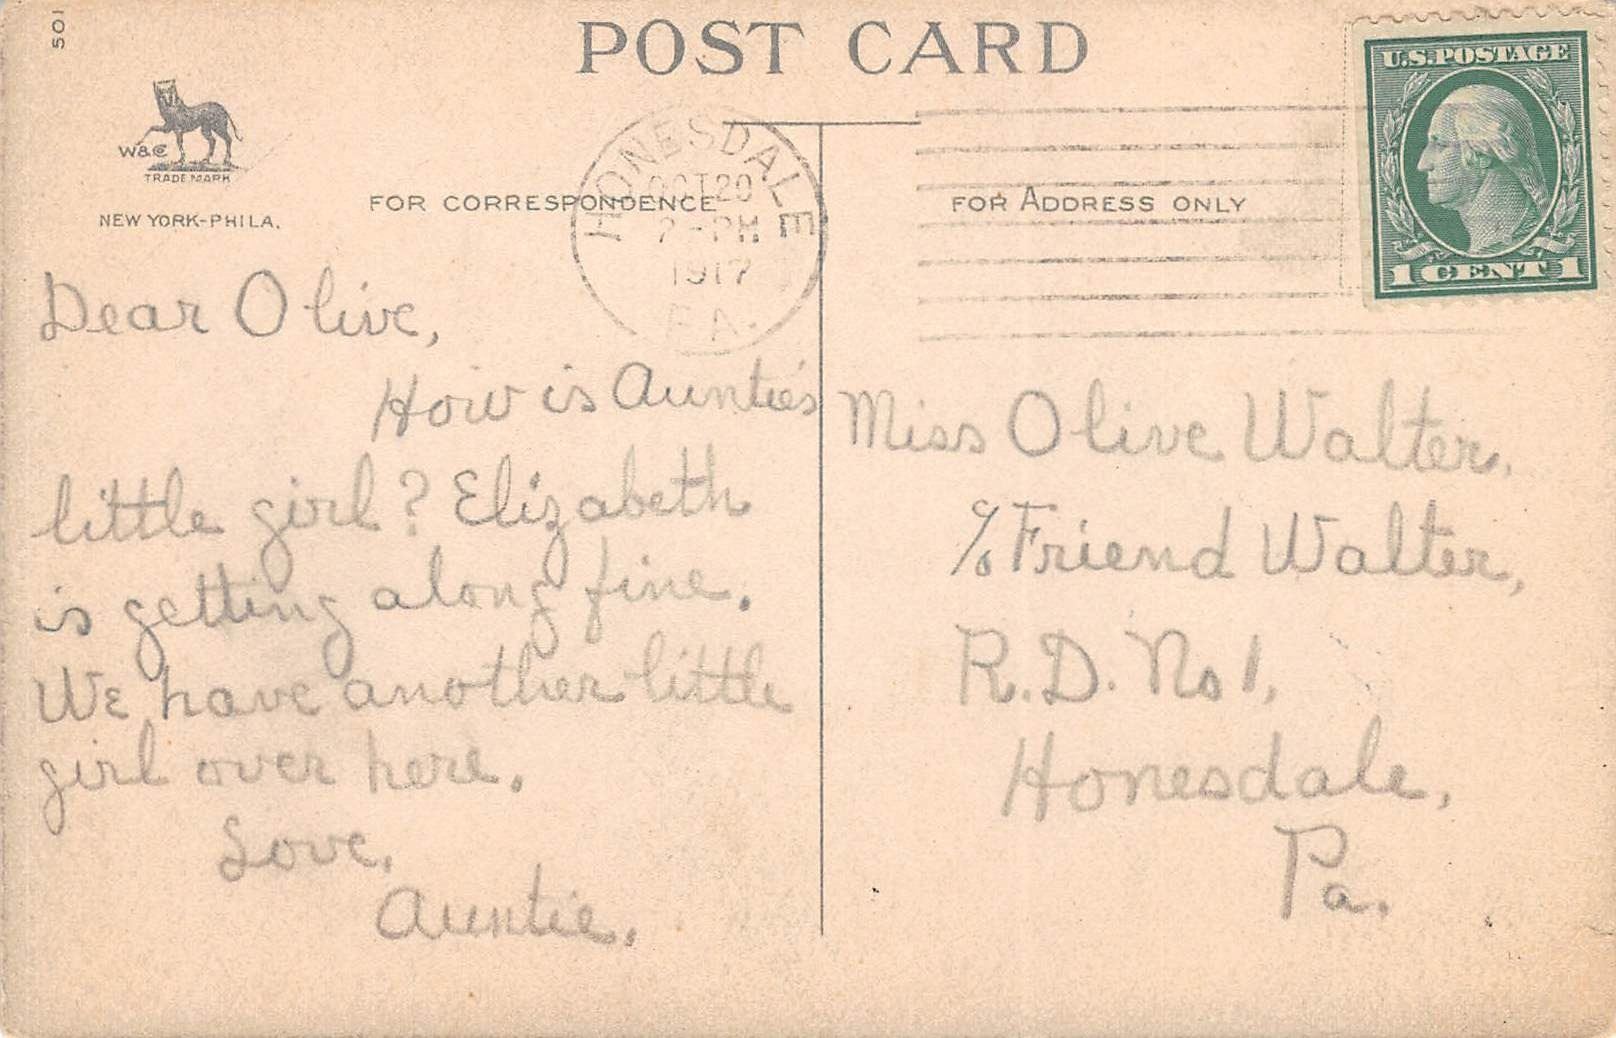 501
POST CARD
W&C
TRADE MARK
NEW YORK-PHILA.
FOR CORRESPONDENCE
HONESDALE
OCT 20
2-PM
1917
PA.
FOR ADDRESS ONLY
U.S. POSTAGE
1 CENT 1
Dear Olive,
How is Auntie's
little girl? Elizabeth
is getting along fine.
We have another little
girl over here.
Love,
Auntie.
Miss Olive Walter,
c/o Friend Walter,
R.D. No 1,
Honesdale,
Pa.